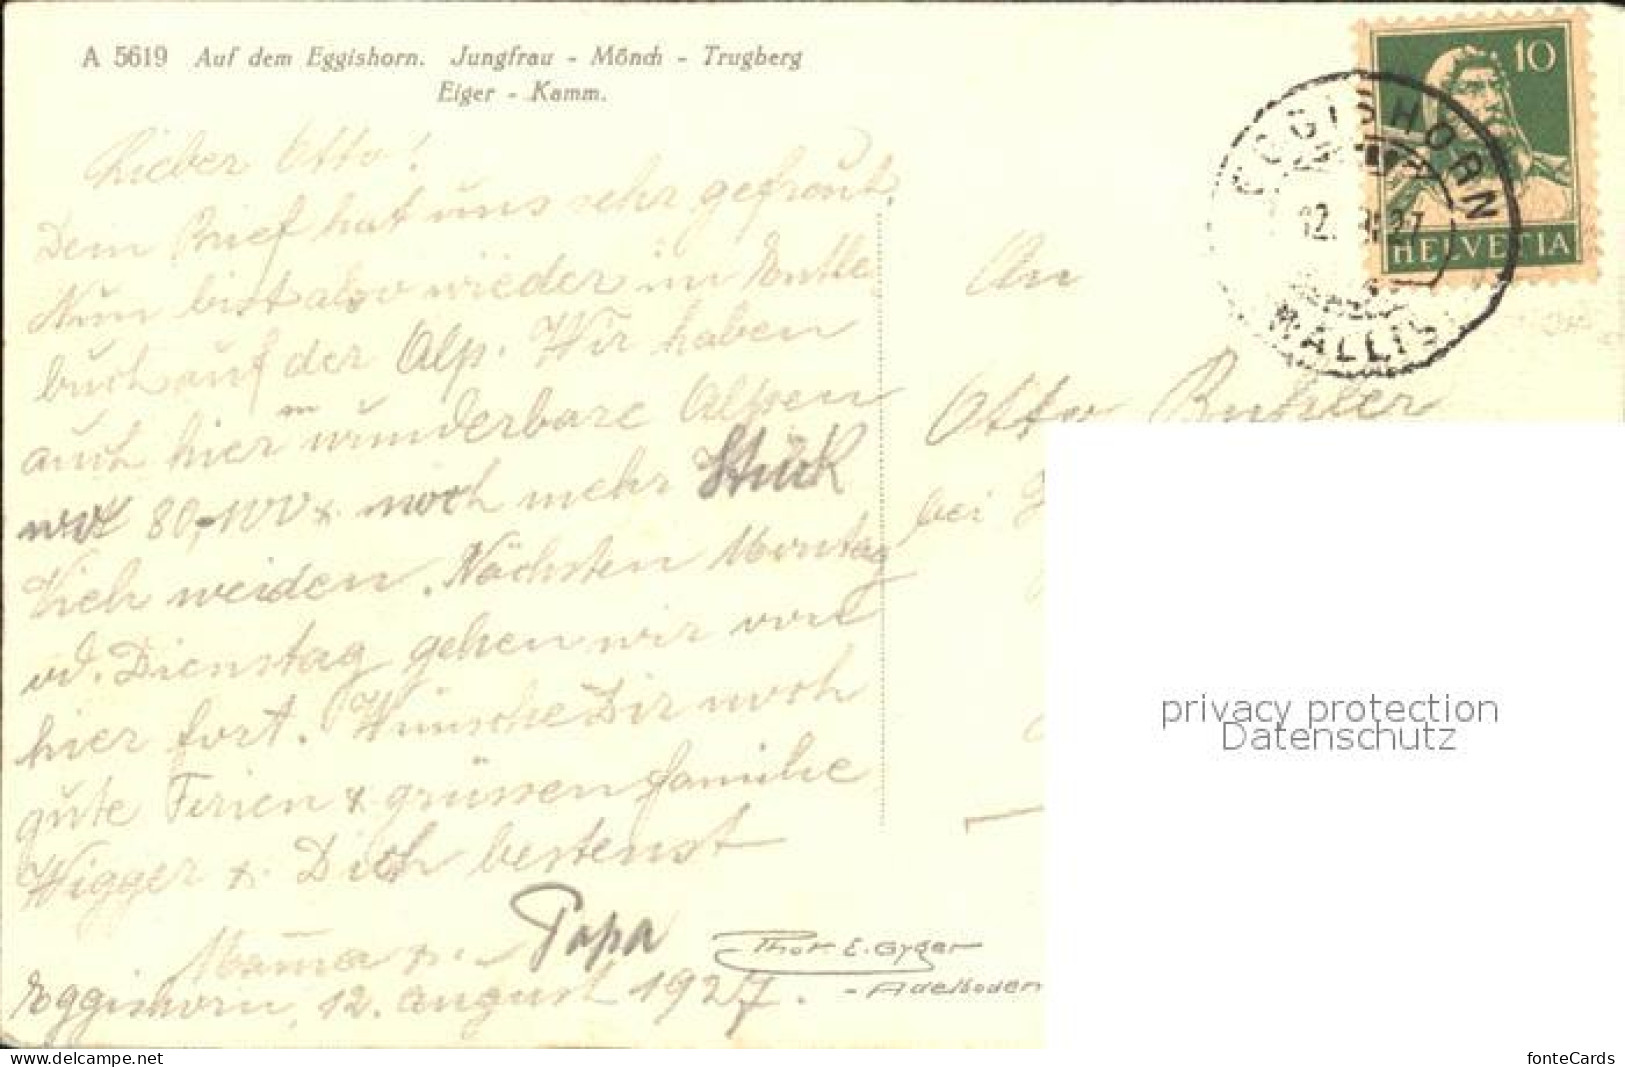 A 5619 Auf dem Eggishorn. Jungfrau - Mönch - Trugberg
Eiger - Kamm.
Lieber Otto!
Dein Brief hat uns sehr gefreut.
Nun bist also wieder im Entle
buch auf der Alp. Wir haben
auch hier wunderbare Alpen
wo 80-100 & noch mehr Stück
Vieh weiden. Nächsten Montag
od. Dienstag gehen wir von
hier fort. Wünsche Dir noch
gute Ferien & grüssen familie
Wigger & Dich bestens
Mama & Papa
Eggishorn, 12. august 1927.
Phot. E. Gyger
- Adelboden
10
HELVETIA
EGGISHORN
12. 27
WALLIS
An
Otto Buhler
bei
privacy protection
Datenschutz
www.delcampe.net
fonteCards